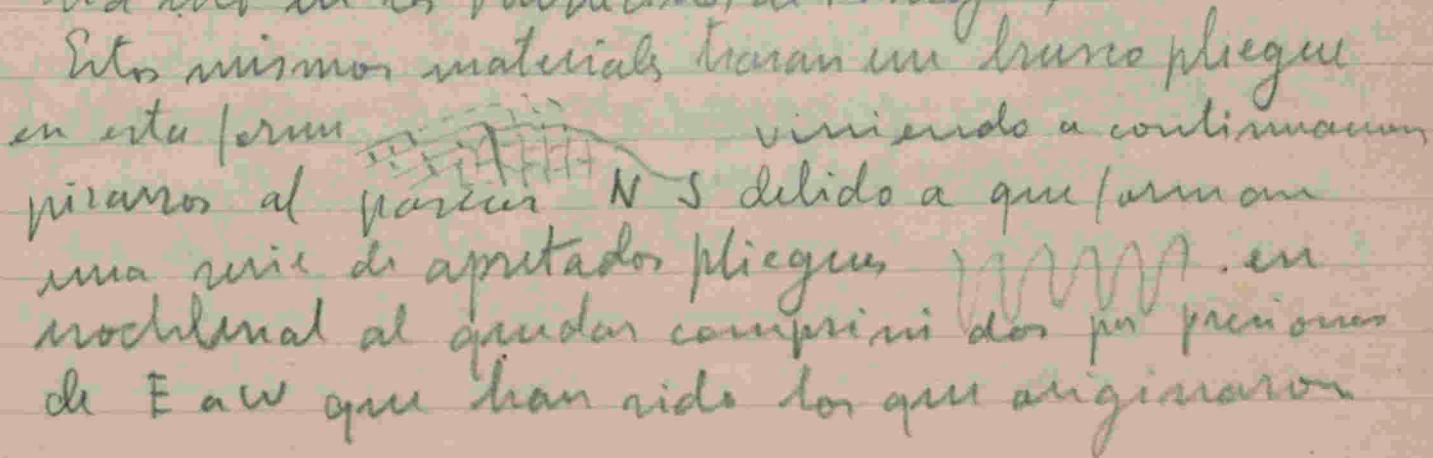 Estos mismos materiales hacen un brusco pliegue
en esta forma viniendo a continuacion
pizarras al parecer N S debido a que forman
una serie de apretados pliegues . en
isoclinal al quedar comprimidos por presiones
de E a W que han sido los que originaron